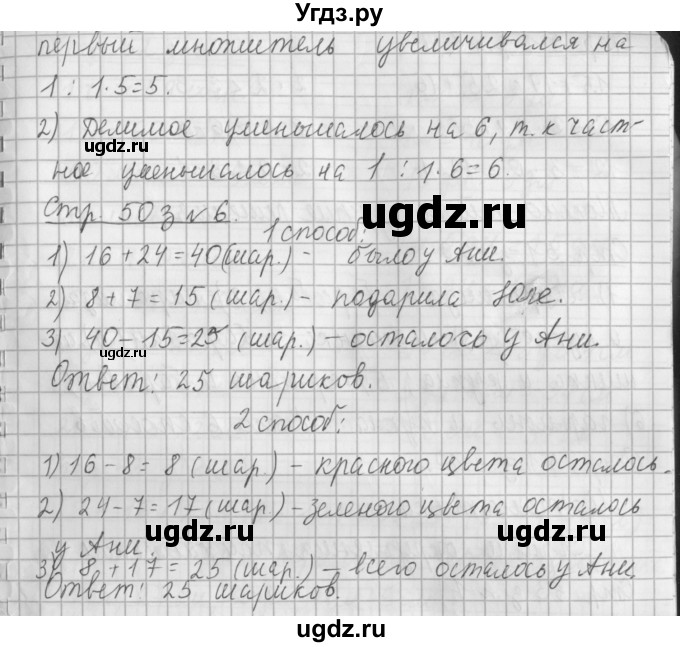 Угдз.ру
первый множитель увеличивался на
1 : 1·5=5.
2) Делимое уменьшалось на 6, т.к част-
ное уменьшалось на 1 : 1·6=6.
Стр. 50 з №6.
1 способ:
1) 16+24=40(шар.) - было у Ани.
2) 8+7=15 (шар.) - подарила Юле.
3) 40-15=25 (шар.) - осталось у Ани.
Ответ: 25 шариков.
2 способ:
1) 16-8=8 (шар.) - красного цвета осталось.
2) 24-7=17(шар.) - зеленого цвета осталось
у Ани.
3) 8+17=25 (шар.) - всего осталось у Ани.
Ответ: 25 шариков.
ugdz.ru
ugdz.ru
ugdz.ru
ugdz.ru
ugdz.ru
ugdz.ru
ugdz.ru
ugdz.ru